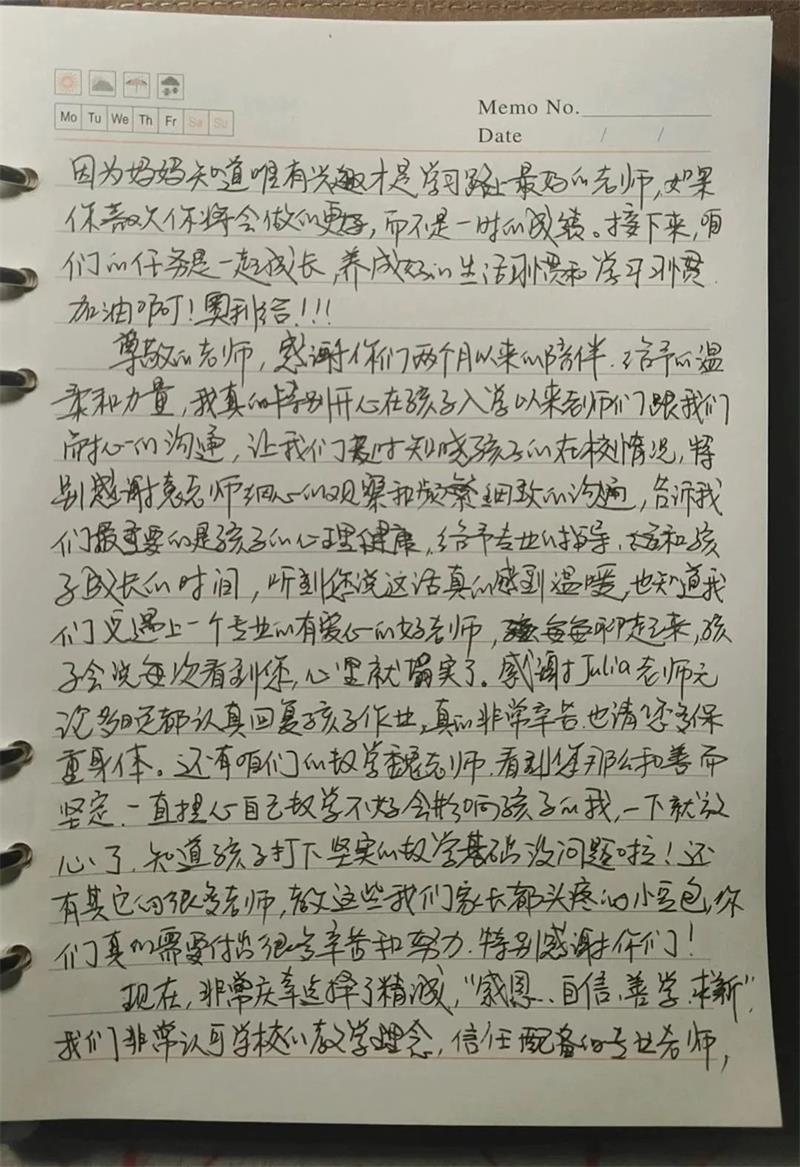 Memo No.
Mo Tu We Th Fr Sa Su
Date / /
因为妈妈知道唯有兴趣才是学习路上最好的老师,如果
你喜欢你将会做的更好,而不是一时的成绩。接下来,咱
们的任务是一起成长,养成好的生活习惯和学习习惯.
加油啊!奥利给!!!
尊敬的老师,感谢你们两个月以来的陪伴.给予的温
柔和力量,我真的特别开心在孩子入学以来老师们跟我们
耐心的沟通,让我们及时知晓孩子的在校情况,特
别感谢袁老师细心的观察和频繁细致的沟通,告诉我
们最重要的是孩子的心理健康,给予专业的指导.和孩
子成长的时间,听到您说这话真的感到温暖,也知道我
们又遇上一个专业的有爱心的好老师,每每聊起来,孩
子会说每次看到您,心里就踏实了。感谢Julia老师无
论多晚都认真回复孩子作业,真的非常辛苦.也请您多保
重身体。还有咱们的数学魏老师.看到您那么和善而
坚定.一直担心自己数学不好会影响孩子的我,一下就放
心了.知道孩子打下坚实的数学基础没问题啦!还
有其它的很多老师,教这些我们家长都头疼的小豆包,你
们真的需要付出很多辛苦和努力.特别感谢你们!
现在,非常庆幸选择了精诚,“感恩、自信、善学、求新”.
我们非常认可学校的教学理念,信任配备的专业老师,